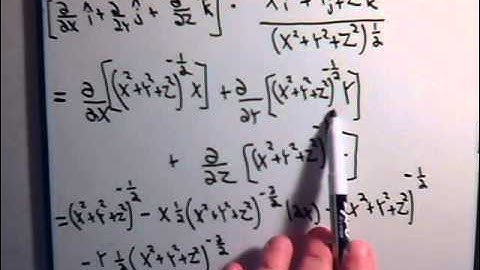 [∂/∂x î + ∂/∂y ĵ + ∂/∂z k̂] · xî + yĵ + zk̂ / (x²+y²+z²)^½
= ∂/∂x [(x²+y²+z²)^-½ x] + ∂/∂y [(x²+y²+z²)^-½ y]
+ ∂/∂z [(x²+y²+z²) ]
= (x²+y²+z²)^-½ - x ½ (x²+y²+z²)^-3/2 (2x) + (x²+y²+z²)^-½
- y ½ (x²+y²+z²)^-3/2